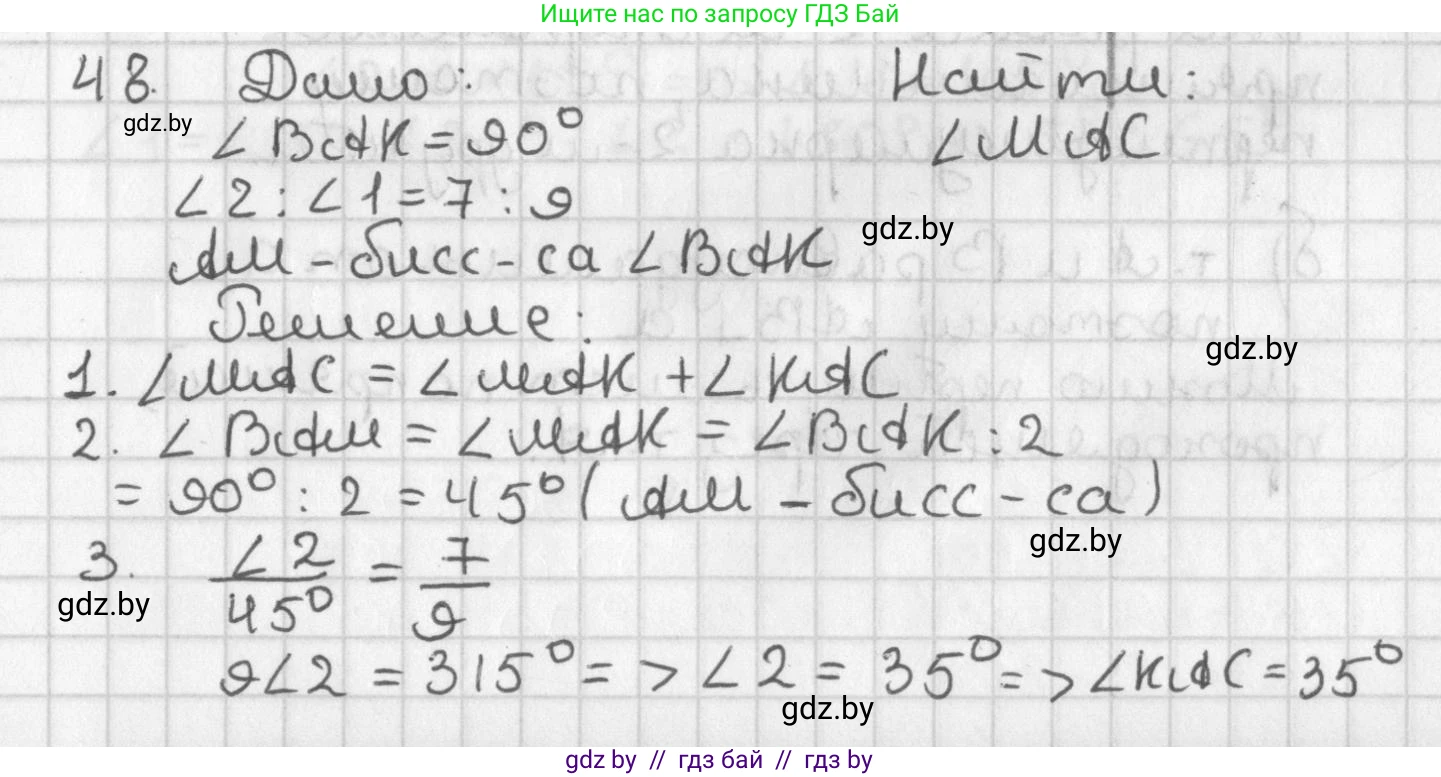 Ищите нас по запросу ГДЗ Бай
48. Дано: Найти:
gdz.by
∠BAK = 90° ∠MAC
∠2 : ∠1 = 7 : 9
AM - бисс-са ∠BAK gdz.by
Решение:
gdz.by
1. ∠MAC = ∠MAK + ∠KAC
2. ∠BAM = ∠MAK = ∠BAK : 2
= 90° : 2 = 45° (AM - бисс-са)
gdz.by
3. ∠2/45° = 7/9
gdz.by
9∠2 = 315° => ∠2 = 35° => ∠KAC = 35°
gdz.by
gdz by // гдз бай // гдз by